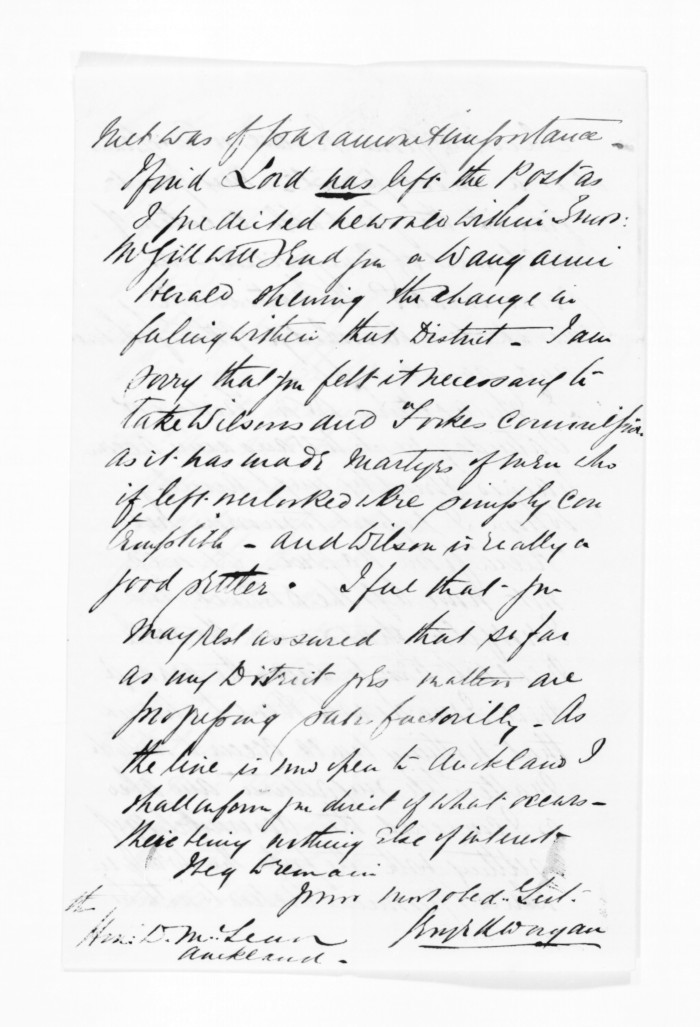 was of paramount importance.
I find Lord has left the Post as
I predicted he would within 3 mos:
McGill will send you a Wanganui
Herald shewing the change in
feeling within that District - I am
sorry that you felt it necessary to
take Wilsons and Forkes Commission.
as it has made Martyrs of men who
if left overlooked are simply con
temptible - and Wilson is really a
good settler. I feel that you
may rest assured that so far
as my District goes matters are
progressing satisfactorilly - As
the line is now open to Auckland I
shall inform you direct of what occurs -
there being nothing else of interest
I beg to remain
Your most obed. Servt.
the
Hon: D. McLean
Auckland -
Worgan